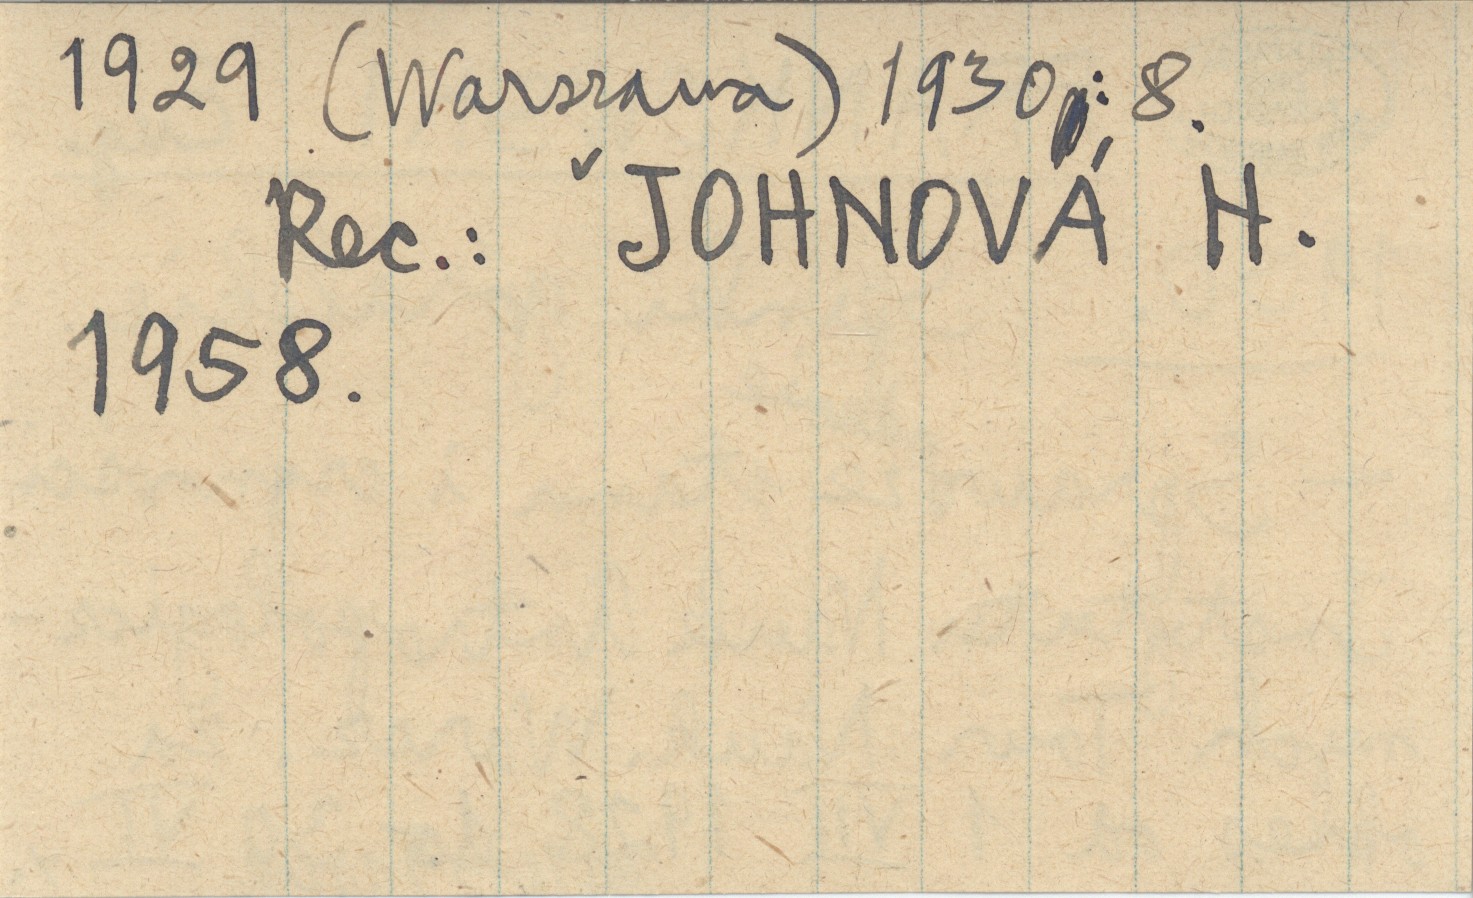 1929 (Warszawa) 1930, : 8.
Rec.: ˇJOHNOVÁ H.
1958.